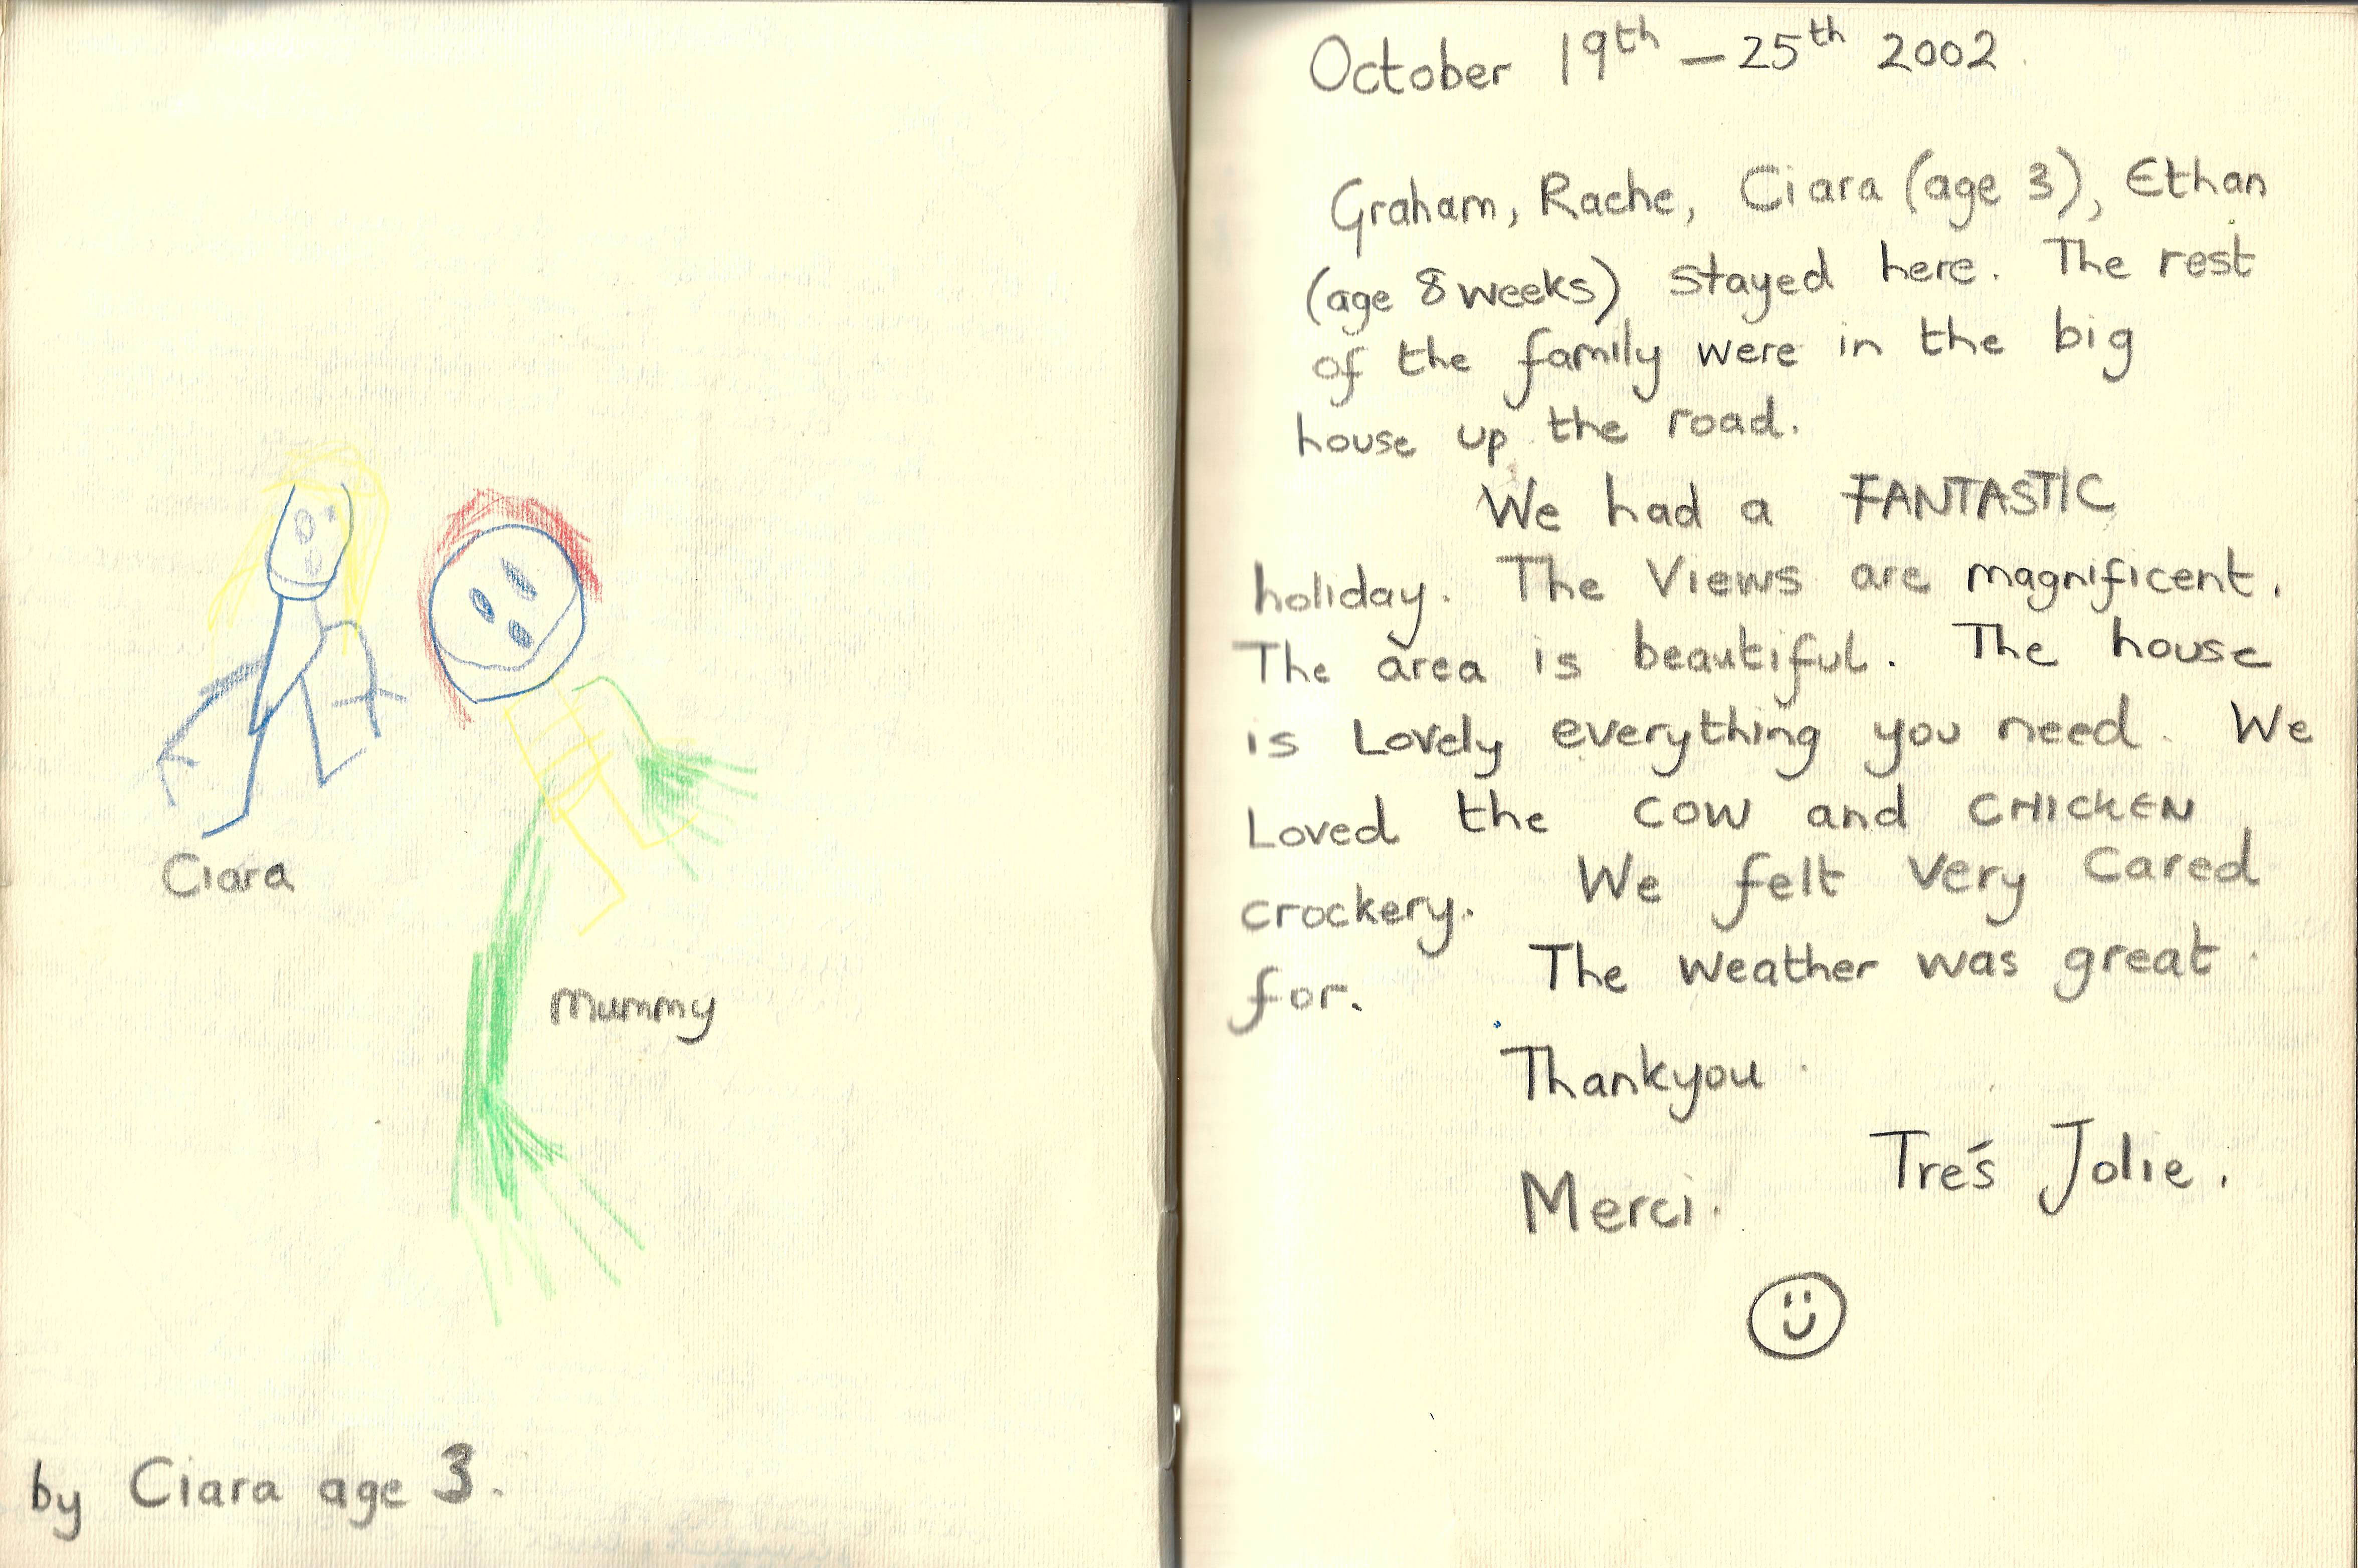 Ciara
Mummy
by Ciara age 3.
October 19th - 25th 2002.
Graham, Rache, Ciara (age 3), Ethan
(age 8 weeks) stayed here. The rest
of the family were in the big
house up the road.
We had a FANTASTIC
holiday. The Views are magnificent.
The area is beautiful. The house
is Lovely everything you need. We
Loved the COW and CHICKEN
crockery. We felt very cared
for. The weather was great.
Thankyou.
Merci. Trés Jolie.